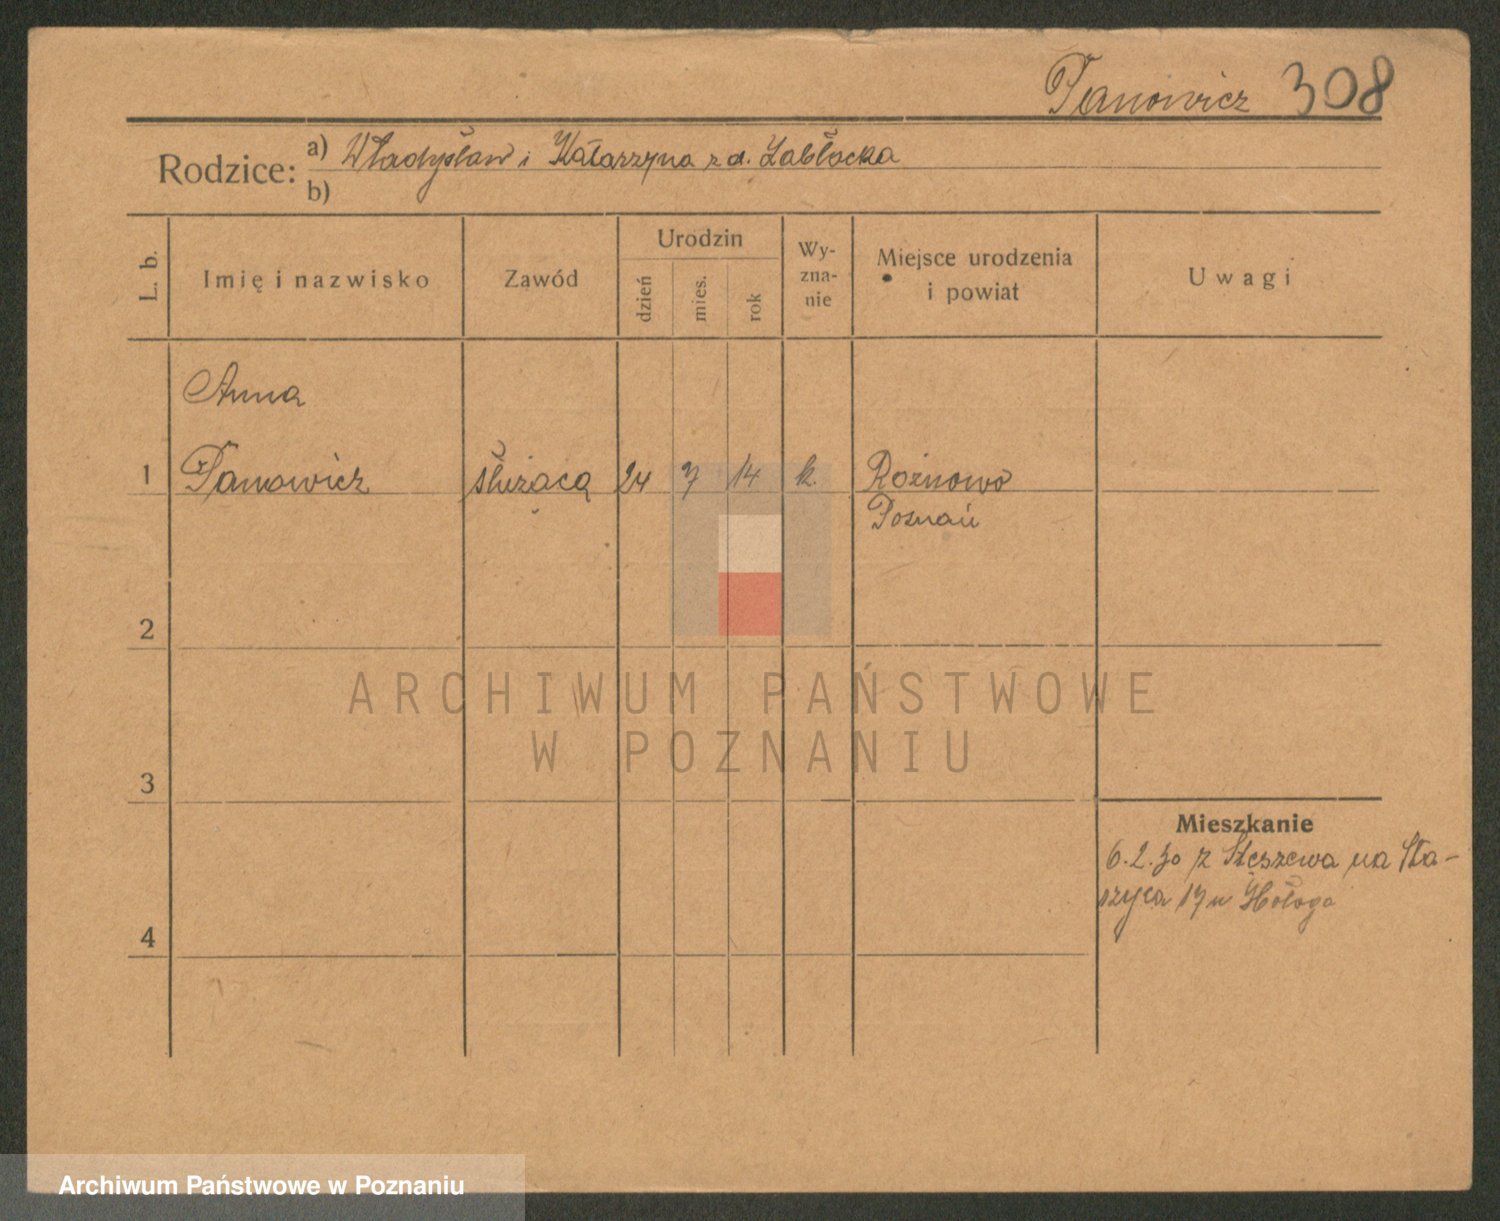 Panowicz 308
Rodzice: a) Władysław i Katarzyna z d. Zabłocka
b)
L. b.
Imię i nazwisko
Zawód
Urodzin
dzień
mies.
rok
Wy-
zna-
nie
Miejsce urodzenia
i powiat
Uwagi
Anna
1 Panowicz służąca 24 7 14 k. Rożnowo
Poznań
2
3
4
Mieszkanie
6.2.30 z Stęszewa na Sta-
szyca 17 u Hołoga
ARCHIWUM PAŃSTWOWE
W POZNANIU
Archiwum Państwowe w Poznaniu